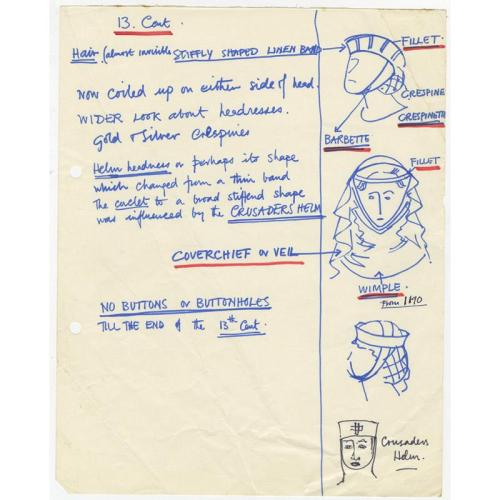 13. Cent.
Hair. (almost invisible STIFFLY SHAPED LINEN BAND
Now coiled up on either side of head.
WIDER LOOK about headresses.
Gold or Silver Crespines
Helm headness or perhaps its shape
which changed from a thin band
The circlet to a broad stiffend shape
was influenced by the CRUSADERS HELM
COVERCHIEF or VEIL
NO BUTTONS or BUTTONHOLES
TILL THE END of the 13th Cent.
FILLET.
CRESPINE
CRESPINETTE
BARBETTE
FILLET
WIMPLE.
From 1190
Crusaders
Helm.